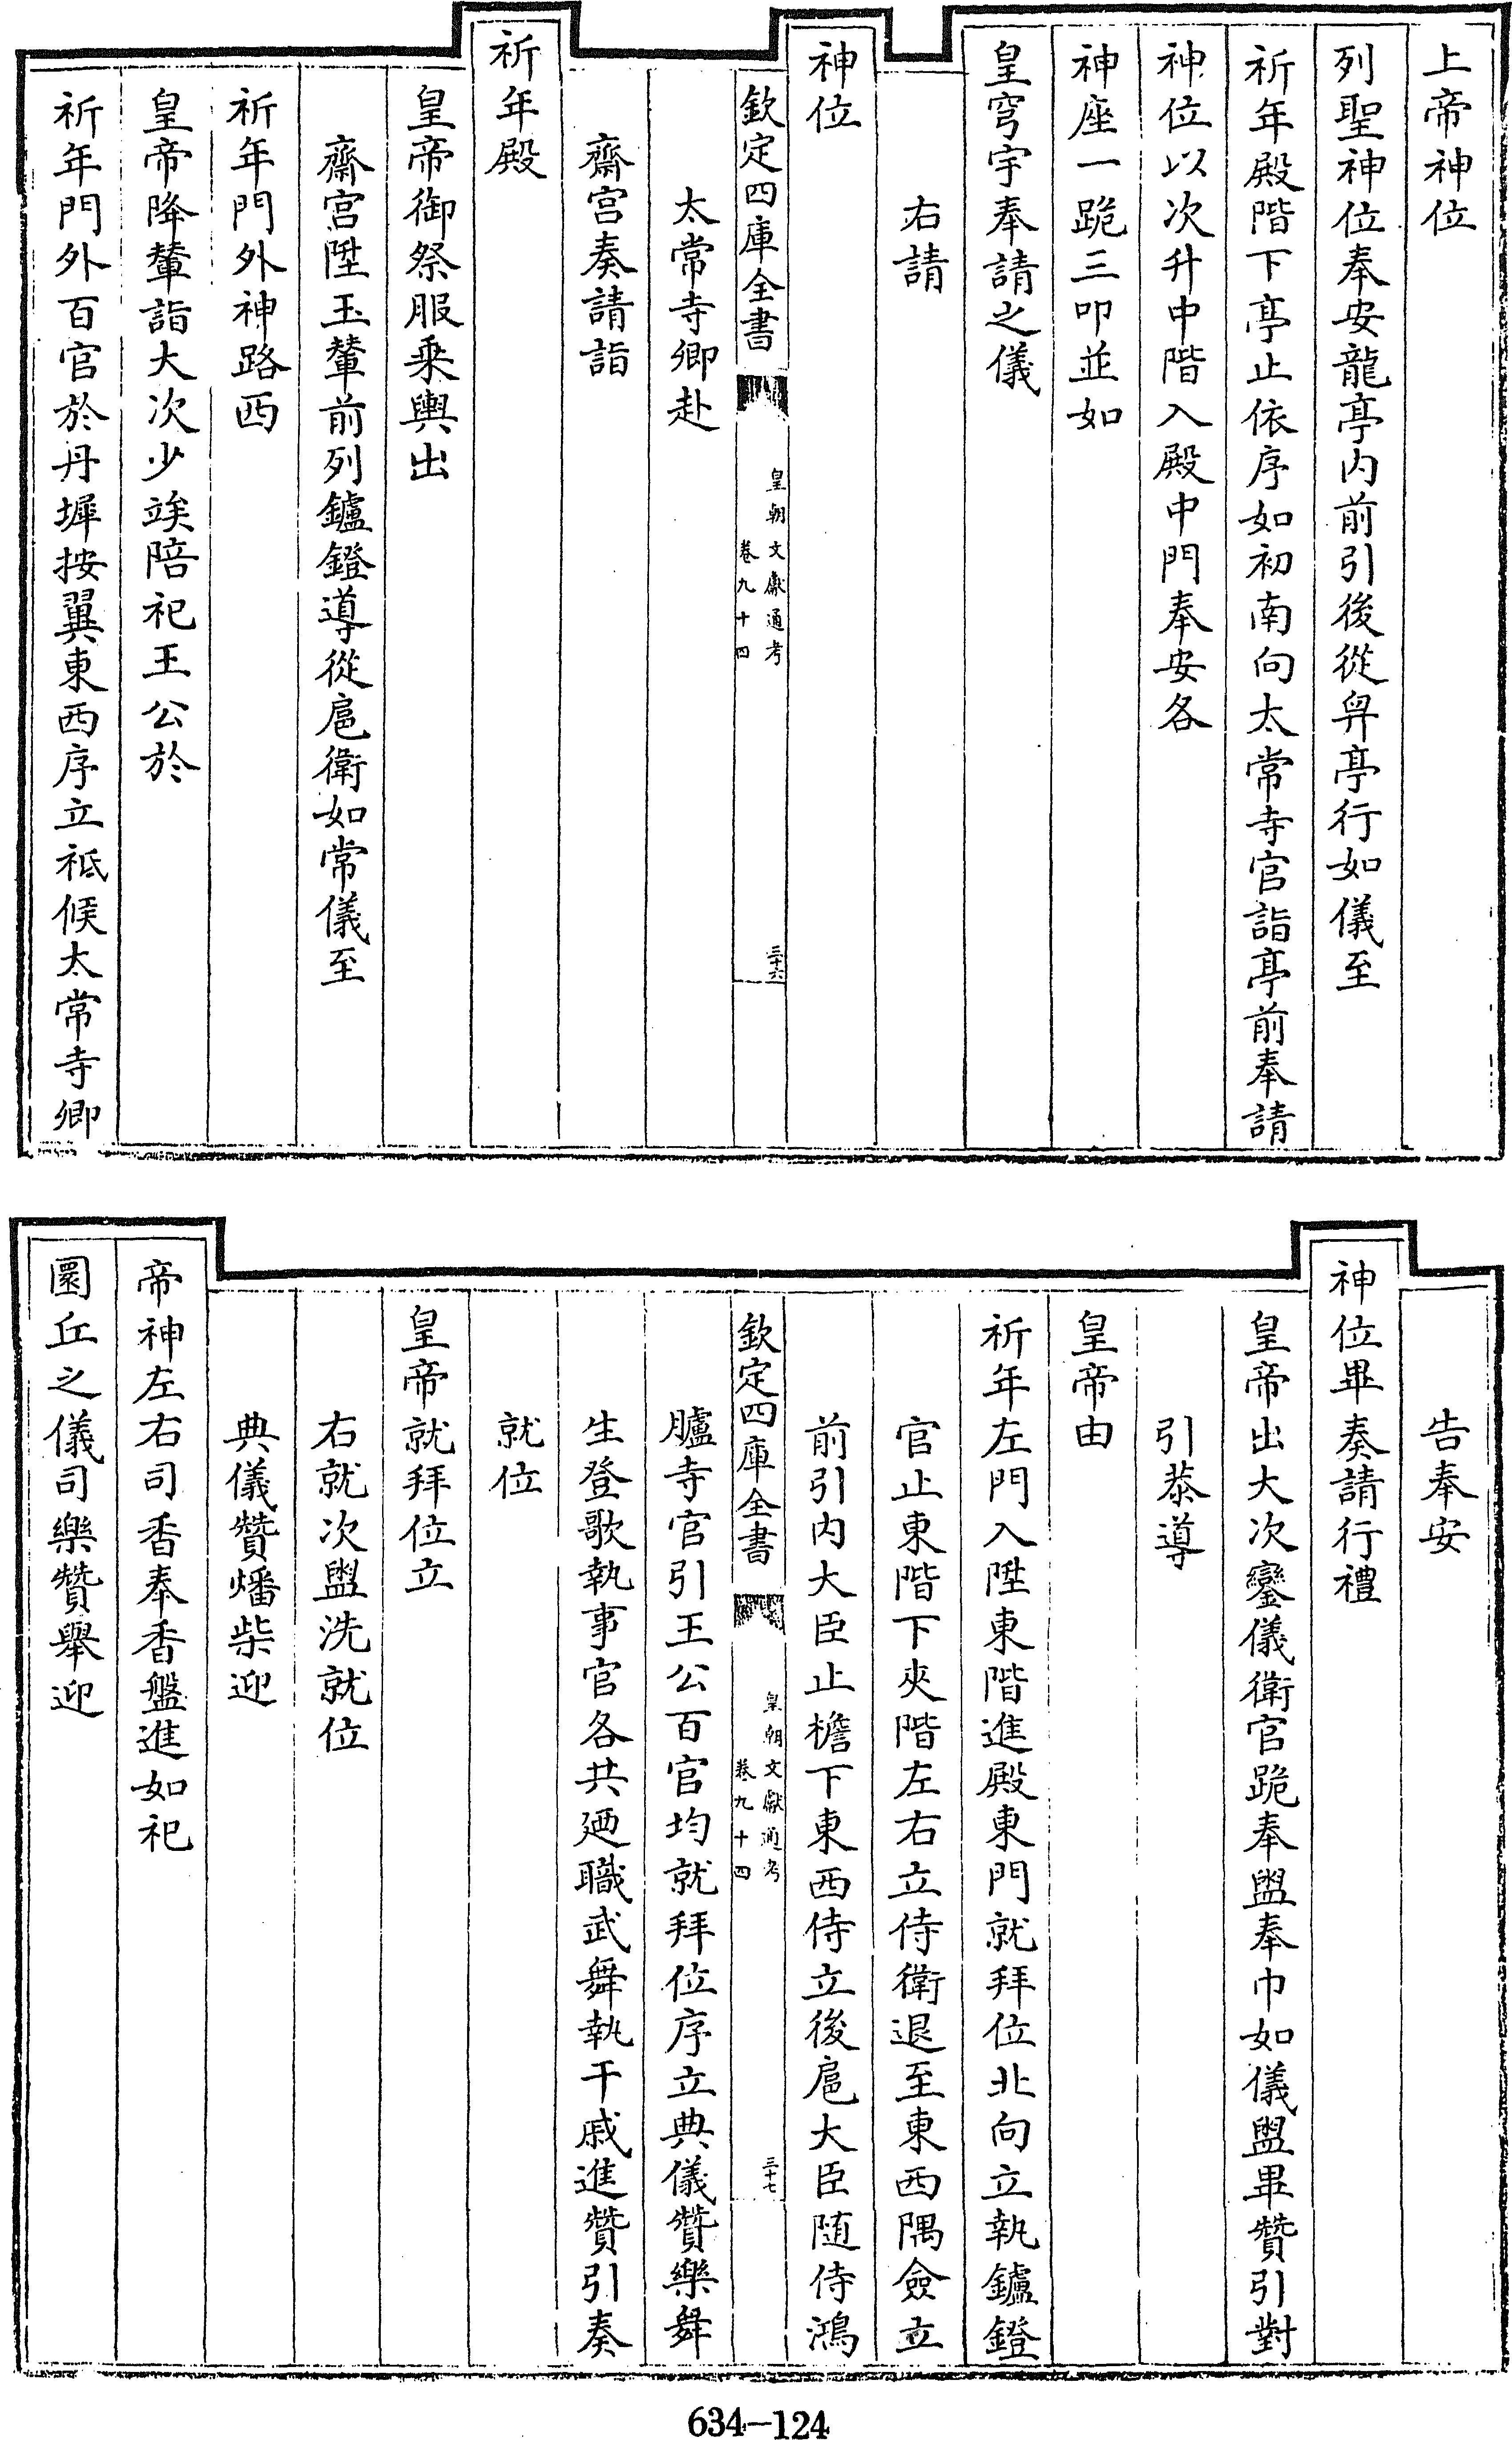 上帝神位
列聖神位奉安龍亭内前引後從舁亭行如儀至
祈年殿階下亭止依序如初南向太常寺官詣亭前奉請
神位以次升中階入殿中門奉安各
神座一跪三叩並如
皇穹宇奉請之儀
右請
神位
欽定四庫全書
皇朝文獻通考
卷九十四
三十六
太常寺卿赴
齋宮奏請詣
祈年殿
皇帝御祭服乘輿出
齋宮陞玉輦前列鑪鐙導從扈衛如常儀至
祈年門外神路西
皇帝降輦詣大次少竢陪祀王公於
祈年門外百官於丹墀按翼東西序立祗候太常寺卿
告奉安
神位畢奏請行禮
皇帝出大次鑾儀衛官跪奉盥奉巾如儀盥畢贊引對
引恭導
皇帝由
祈年左門入陞東階進殿東門就拜位北向立執鑪鐙
官止東階下夾階左右立侍衛退至東西隅僉立
前引内大臣止檐下東西侍立後扈大臣随侍鴻
臚寺官引王公百官均就拜位序立典儀贊樂舞
生登歌執事官各共廼職武舞執干戚進贊引奏
就位
皇帝就拜位立
右就次盥洗就位
典儀贊燔柴迎
帝神左右司香奉香盤進如祀
圜丘之儀司樂贊舉迎
634-124